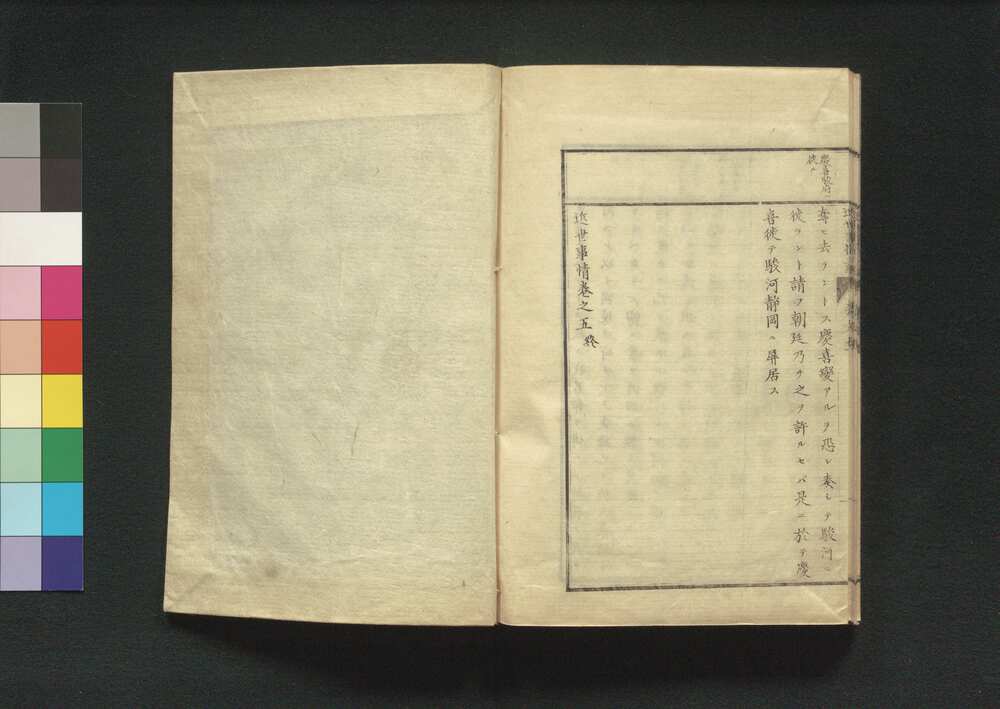 慶喜駿府
徙ル
奪ヒ去ラントス慶喜變アルヲ恐レ奏シテ駿河ニ
徙ラント請フ朝廷乃チ之ヲ許ルセバ是ニ於テ慶
喜徙テ駿河静岡ニ屏居ス
近世事情巻之五終